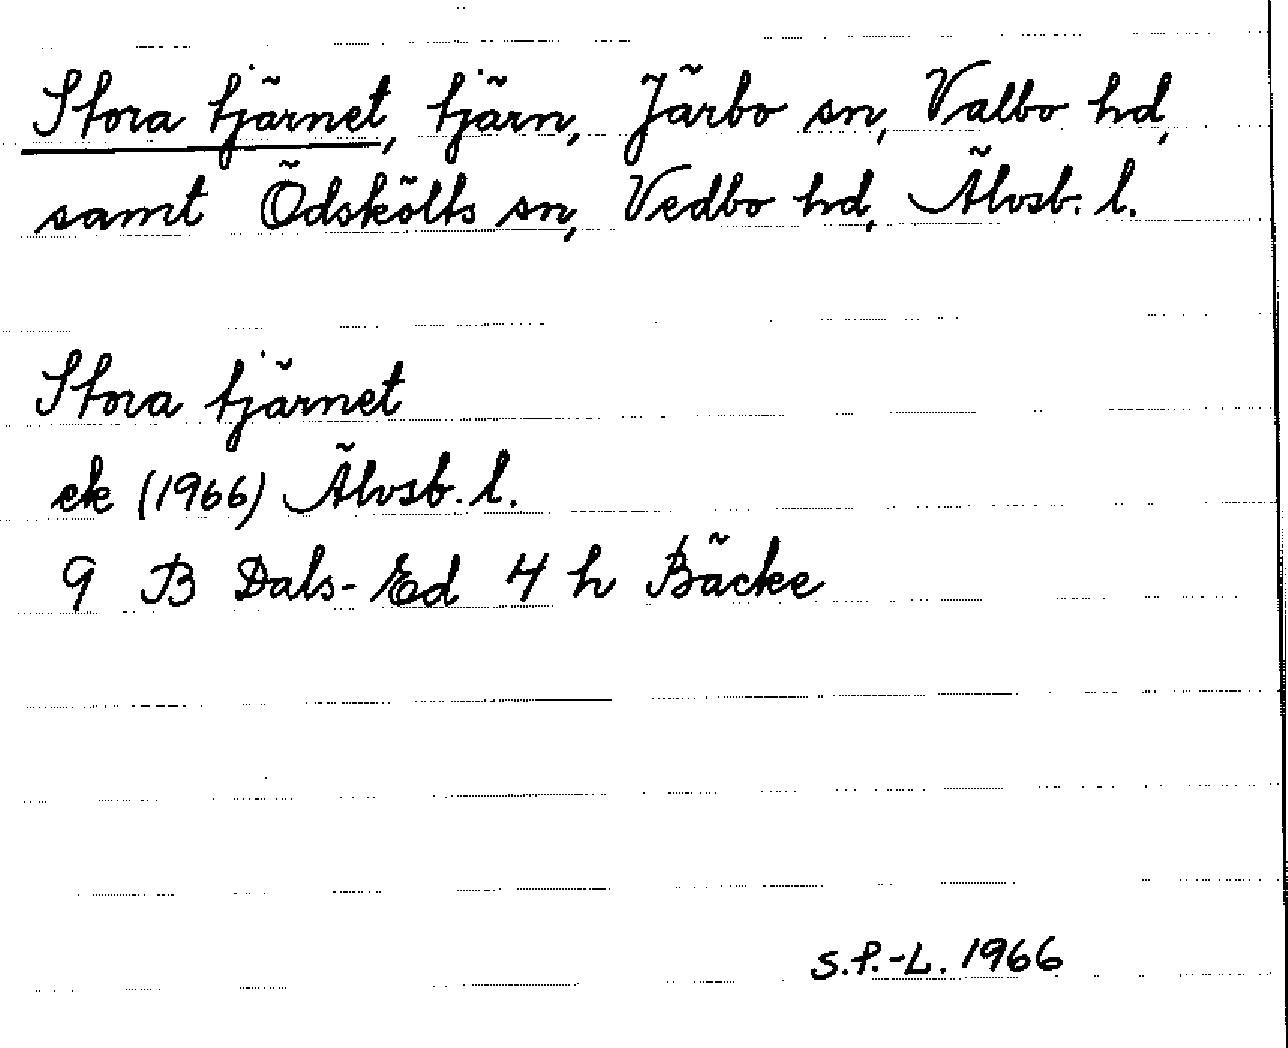 Stora tjärnet, tjärn, Järbo sn, Valbo hd,
samt Ödskölts sn, Vedbo hd, Älvsb. l.
Stora tjärnet
ek (1966) Älvsb. l.
9 B Dals-Ed 4 h Bäcke
S.P.-L. 1966